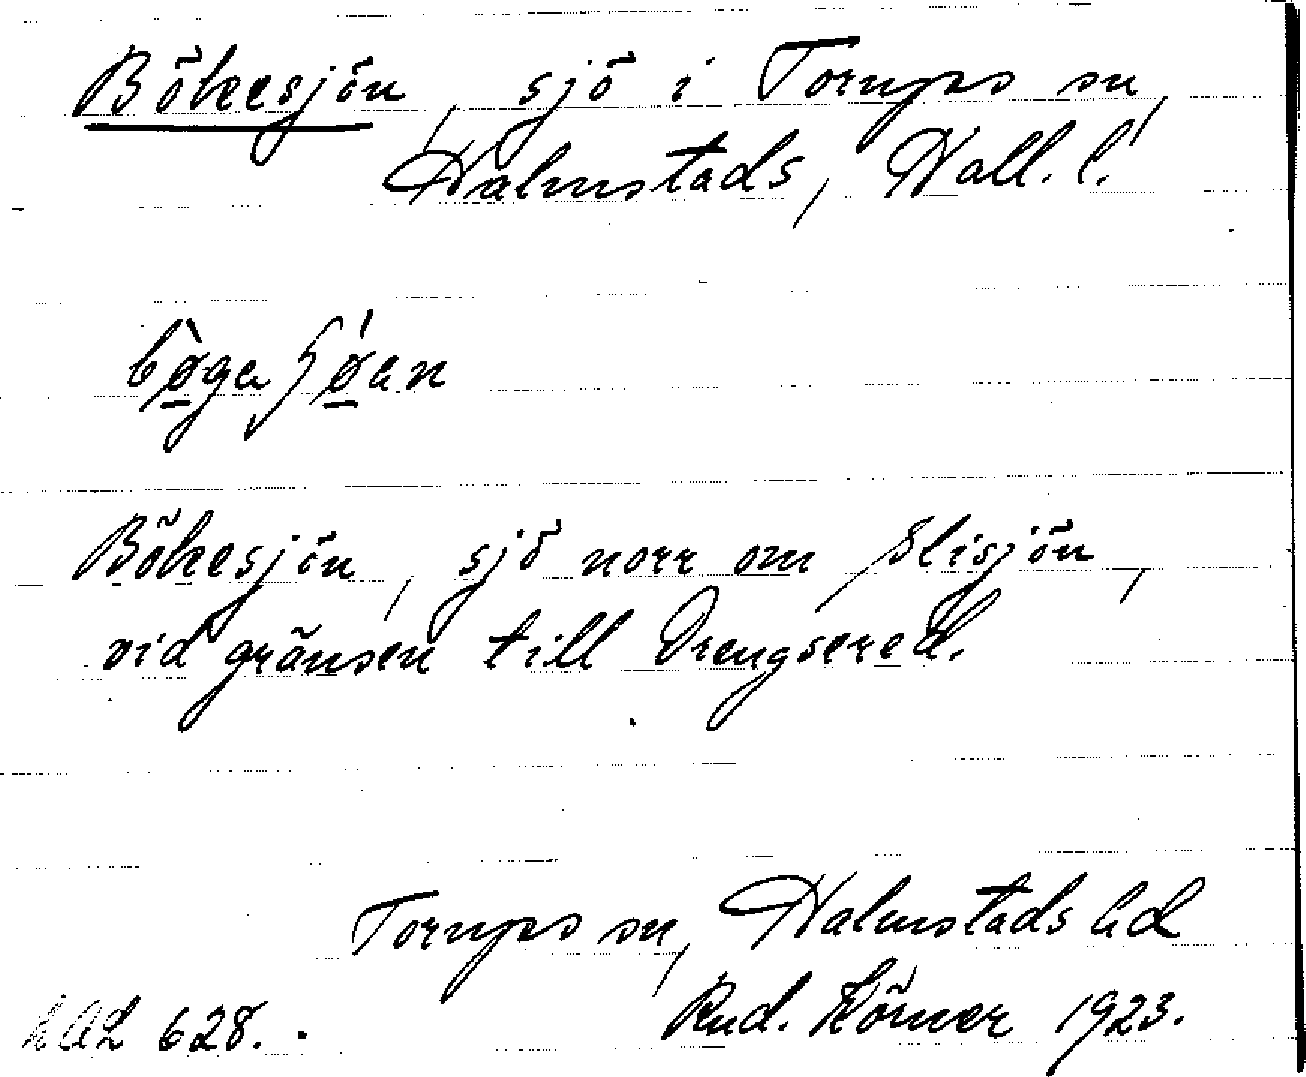 Bökesjön, sjö i Torups sn,
Halmstads, Hall. l.
Bökesjön, sjö norr om Slisjön,
vid gränsen till Drengsered.
Torups sn, Halmstads hd
Rud. Körner 1923.
628.